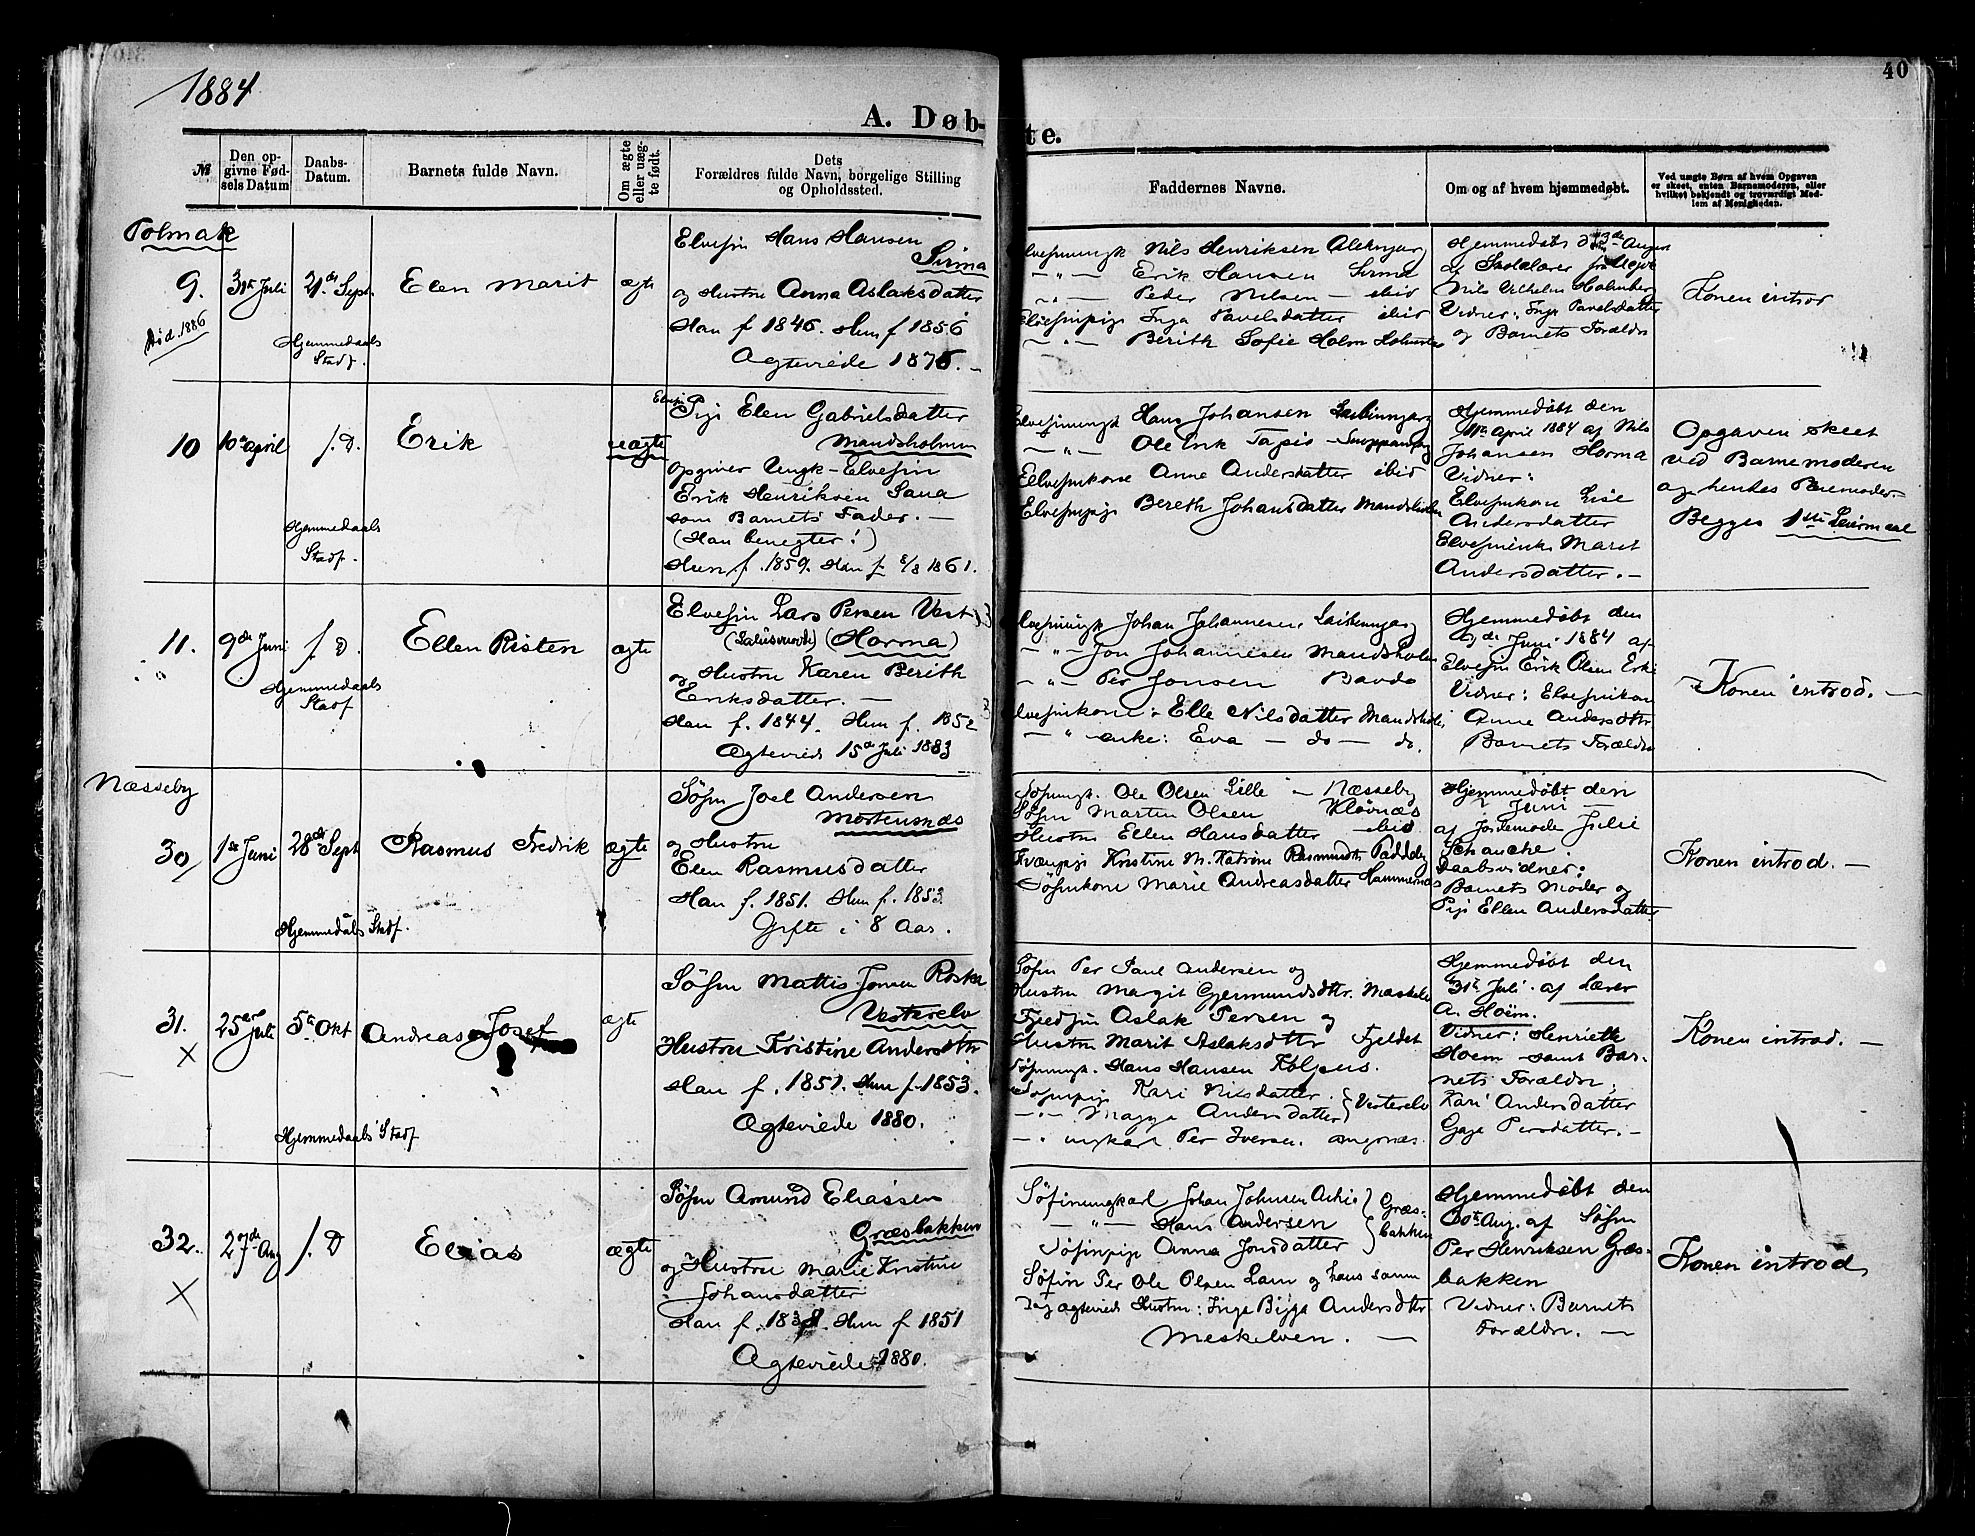 1884
40
A. Døb-
te.
№
Den op-
givne Fød-
sels Datum
Daabs-
Datum.
Barnets fulde Navn.
Om ægte
eller uæg-
te født.
Dets
Forældres fulde Navn, borgelige Stilling
og Opholdssted.
Faddernes Navne.
Om og af hvem hjemmedøbt.
Ved uægte Børn af hvem Opgaven
er skeet, enten Barnemoderen, eller
hvilket bekjendt og troværdigt Med-
lem af Menigheden.
Polmak
9.
Død. 1886
31te Juli
21de Sept
Hjemmedaabs
Stadf.
Elen Marit
ægte
Elvefin Hans Hansen
Sirma
og Hustru Anna Aslaksdatter
Han f 1845. Hun f 1856
Ægteviede 1875. -
Nils Henriksen
-"- Erik Hansen Sirma
-"- Peder Nilsen - ibid
Inga Pavelsdatter ibid
-"- Berith Sofie Holm
Hjemmedøbt
Nils Vilhelm Holmberg
Vidner: Inga Pavelsdatter
og Barnets Forældre
Konen introd
10
10de april
f. D.
Hjemmedaabs
Stadf.
Erik
uægte
Elvefin Pige Elen Gabrielsdatter
Mandsholmen
opgiver Ungk-Elvefin
Erik Henriksen Sara
som Barnets Fader. -
(Han benegter!)
Hun f. 1859. Han f 8/8 1861.
Hans Johansen
-"- Ole Erik Tapis
Elvefinkone Anne Andersdatter ibid
Elvefinpige Bereth Johansdatter Mandsholm
Hjemmedøbt den
11te April 1884 af Nils
Johansen Horma
Vidner:
Elvefinkone Lise
Andersdatter
Marit
Andersdatter. -
Opgaven skeet
ved Barnemoderen
og hendes
Begges 1ste Leiermaal
11.
9de Juni
f. D.
Hjemmedaabs
Stadf
Ellen Risten
ægte
Elvefin Lars Persen Vest
(Horma)
og Hustru Karen Berith
Eriksdatter. -
Han f. 1844. Hun f. 1852
Ægteviede 15de Juli 1883
Johan Johannesen
-"- Jon Johannesen Mandsholm
-"- Per Jonsen
Elle Nilsdatter Mandsholm
-"- enke: Eva - do - do.
Hjemmedøbt den
Juni 1884 af
Elvefin Erik Olsen
Vidner: Elvefinkone
Anne Andersdtr
Barnets Forældre
Konen introd. -
Næsseby
30
1ste Juni
28de Sept
Hjemmedaabs Stadf.
Rasmus Fredrik
ægte
Søfin Joel Andersen
Mortensnæs
og Hustru
Elen Rasmusdatter
Han f. 1851. Hun f. 1853.
Gifte i 8 Aar.
Ole Olsen Lille - Næsseby
Søfin Marten Olsen Kløvnæs
Hustru Ellen Hansdatter ibid
Kristine M. Katrine Rasmusdtr Paddeby
Søfinkone Marie Andreasdatter Hammernæs
Hjemmedøbt den
2 Juni
af Jordemoder Julie
Schanche
Daabsvidner:
Barnets Moder og
Pige Ellen Andersdatter
Konen introd. -
31.
X
25de Juli
5te Okt
Hjemmedaabs Stadf
Andreas Josef
ægte
Søfin Mattis Jonsen Roska
Vesterelv
Hustru Kristine Andersdtr
Han f. 1851. Hun f. 1853.
Ægteviede 1880.
Søfin Per Paul Andersen og
Hustru Margit Gjermundsdtr. Meskelv
Fjeldfin Aslak Persen og
Hustru Marit Aslaksdtter Fjeldet
Hans Hansen
Kari Nilsdatter
-"- Magga Andersdatter } Vesterelv
-"- ungkarl Per Iversen. Angsnæs
Hjemmedøbt den
31te Juli af Lærer
A. Hoëm.
Vidner: Henriette
Hoem samt Bar-
nets Forældre;
Kari Andersdatter
Gaja Persdatter. -
Konen introd. -
32.
X
27de Aug
f. D
Elias
ægte
Søfin Amund Eliassen
Græsbakken
og Hustru Marie Kristine
Johansdatter
Han f. 1838. Hun f 1851
Ægteviede 1880.
Søfinungkarl Johan Johnsen
-"- Hans Andersen
Søfinpige Anna Jonsdatter
Græs-
bakken
Søfin Per Ole Olsen Lam og hans samme
Dag ægteviede Hustru: Inga Bigga Andersdtr
Meskelven. -
Hjemmedøbt den
30te Aug. af Søfin
Per Henriksen Græs-
bakken
Vidner: Barnets
Forældre. -
Konen introd